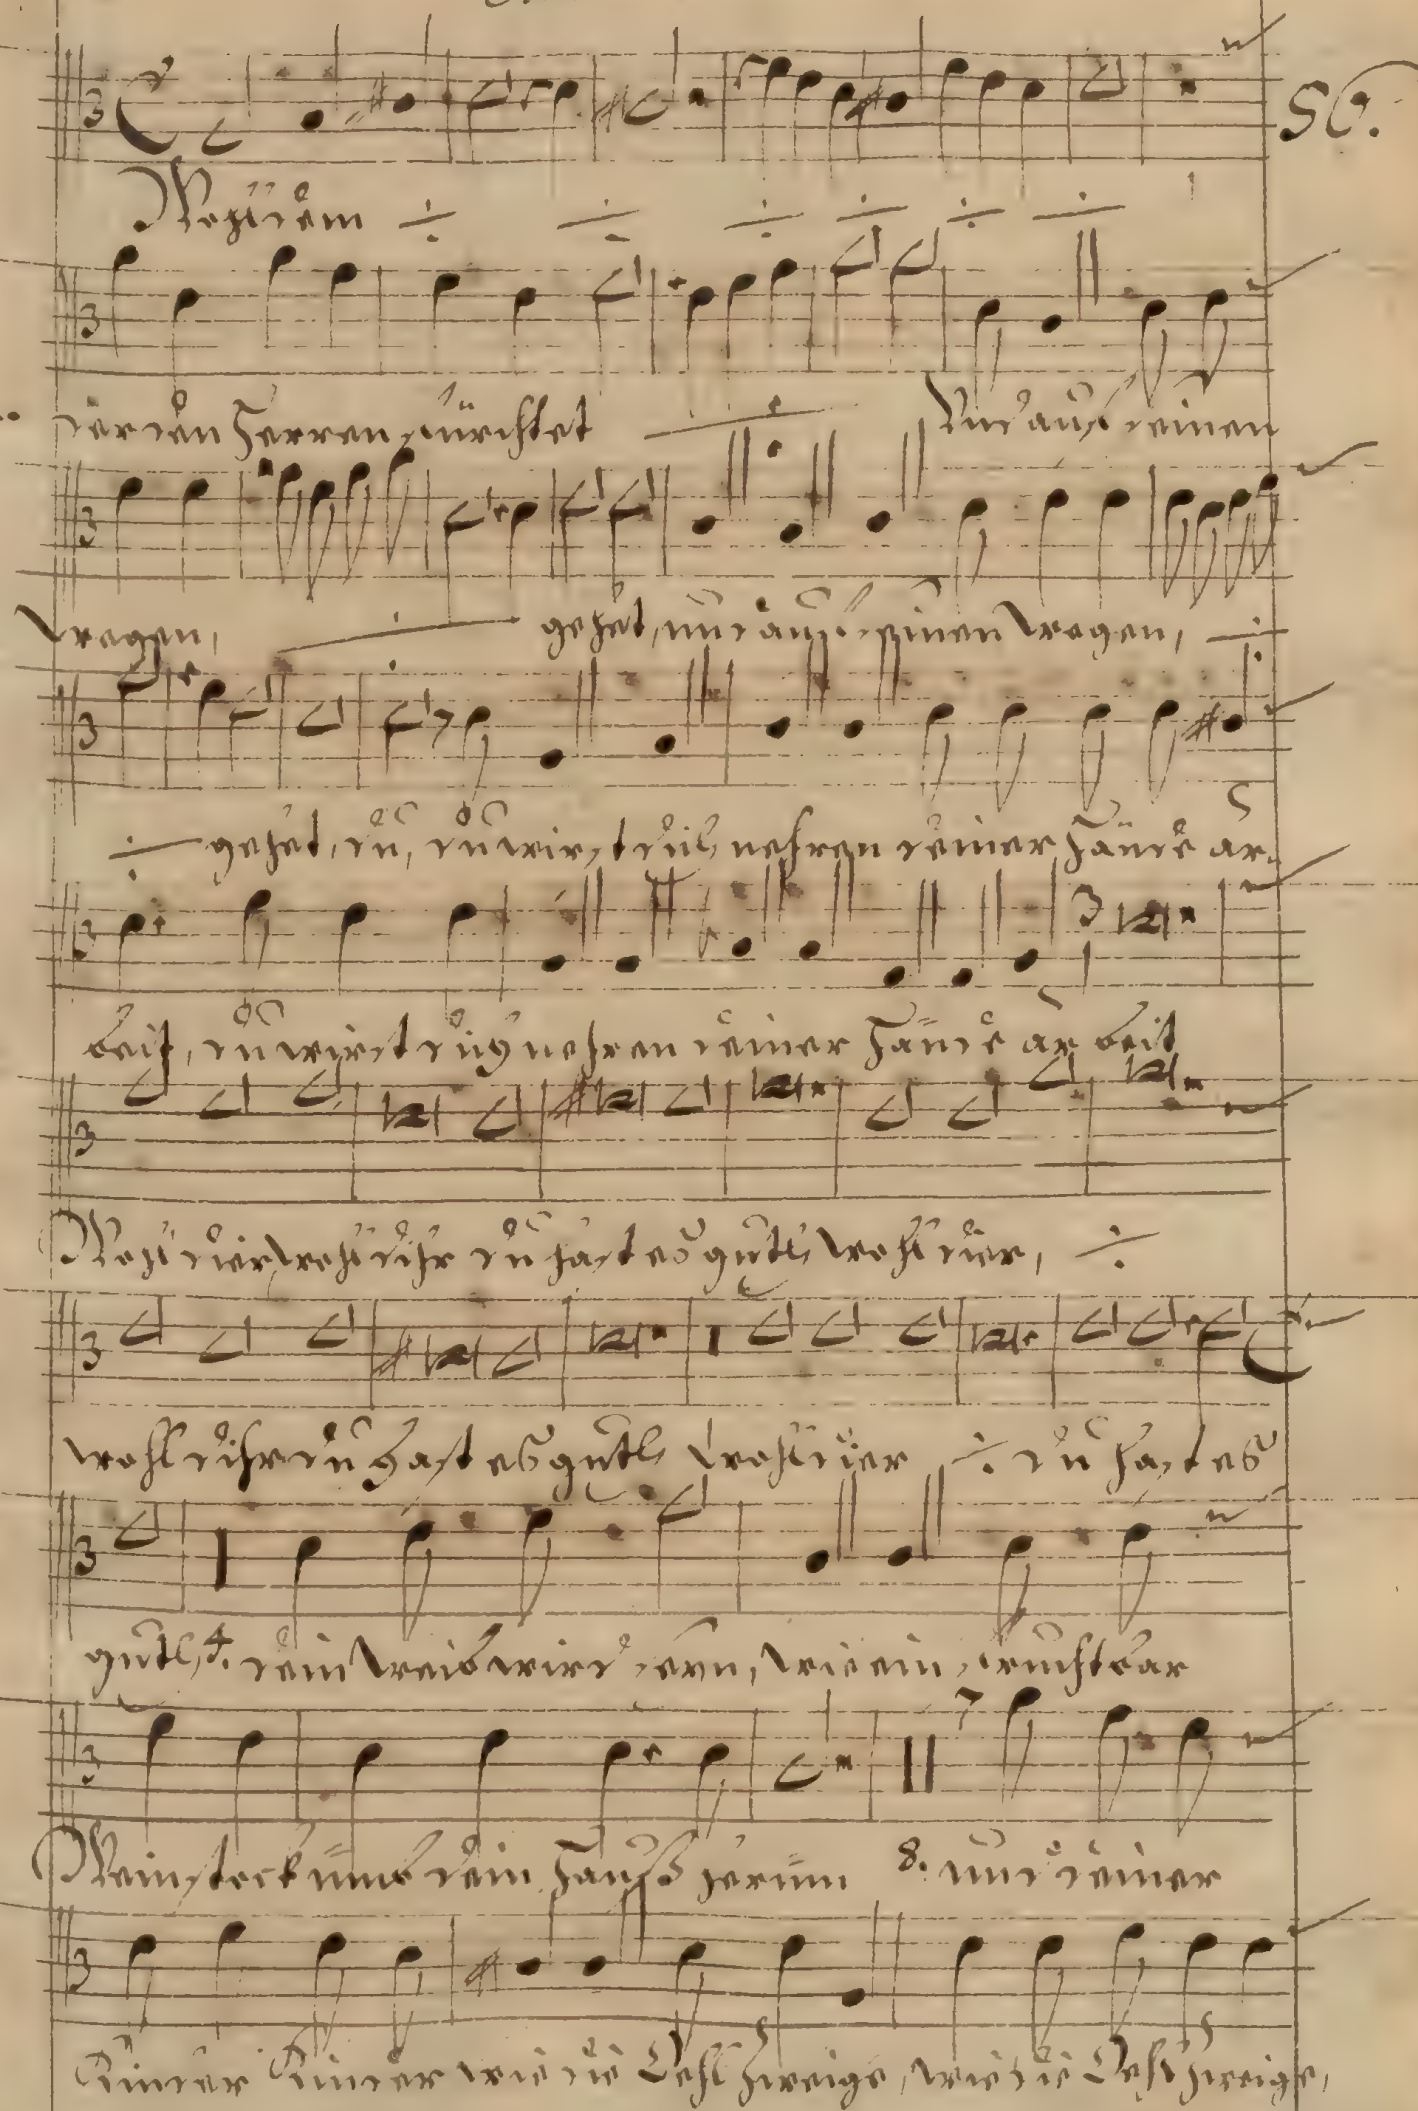 56.
Wohl dem
der den Herren fürchtet Und auf seinen
wegen, gehet, und auf seinen wegen,
gehet, du, du wirst dich nehren deiner Hände ar„
beit, du wirst dich nehren deiner Hände ar beit
Wohl dier wohl dihr du hast es guth, wohl dier,
wohl dihr du hast es guth wohl dier du hast es
guth, 4. dein weib wird seyn, wie ein fruchtbar
Weinstock umb dein Hauß herum 8. und deiner
Kinder Kinder wie die Oehl zweige, wie die Oehl zweige,